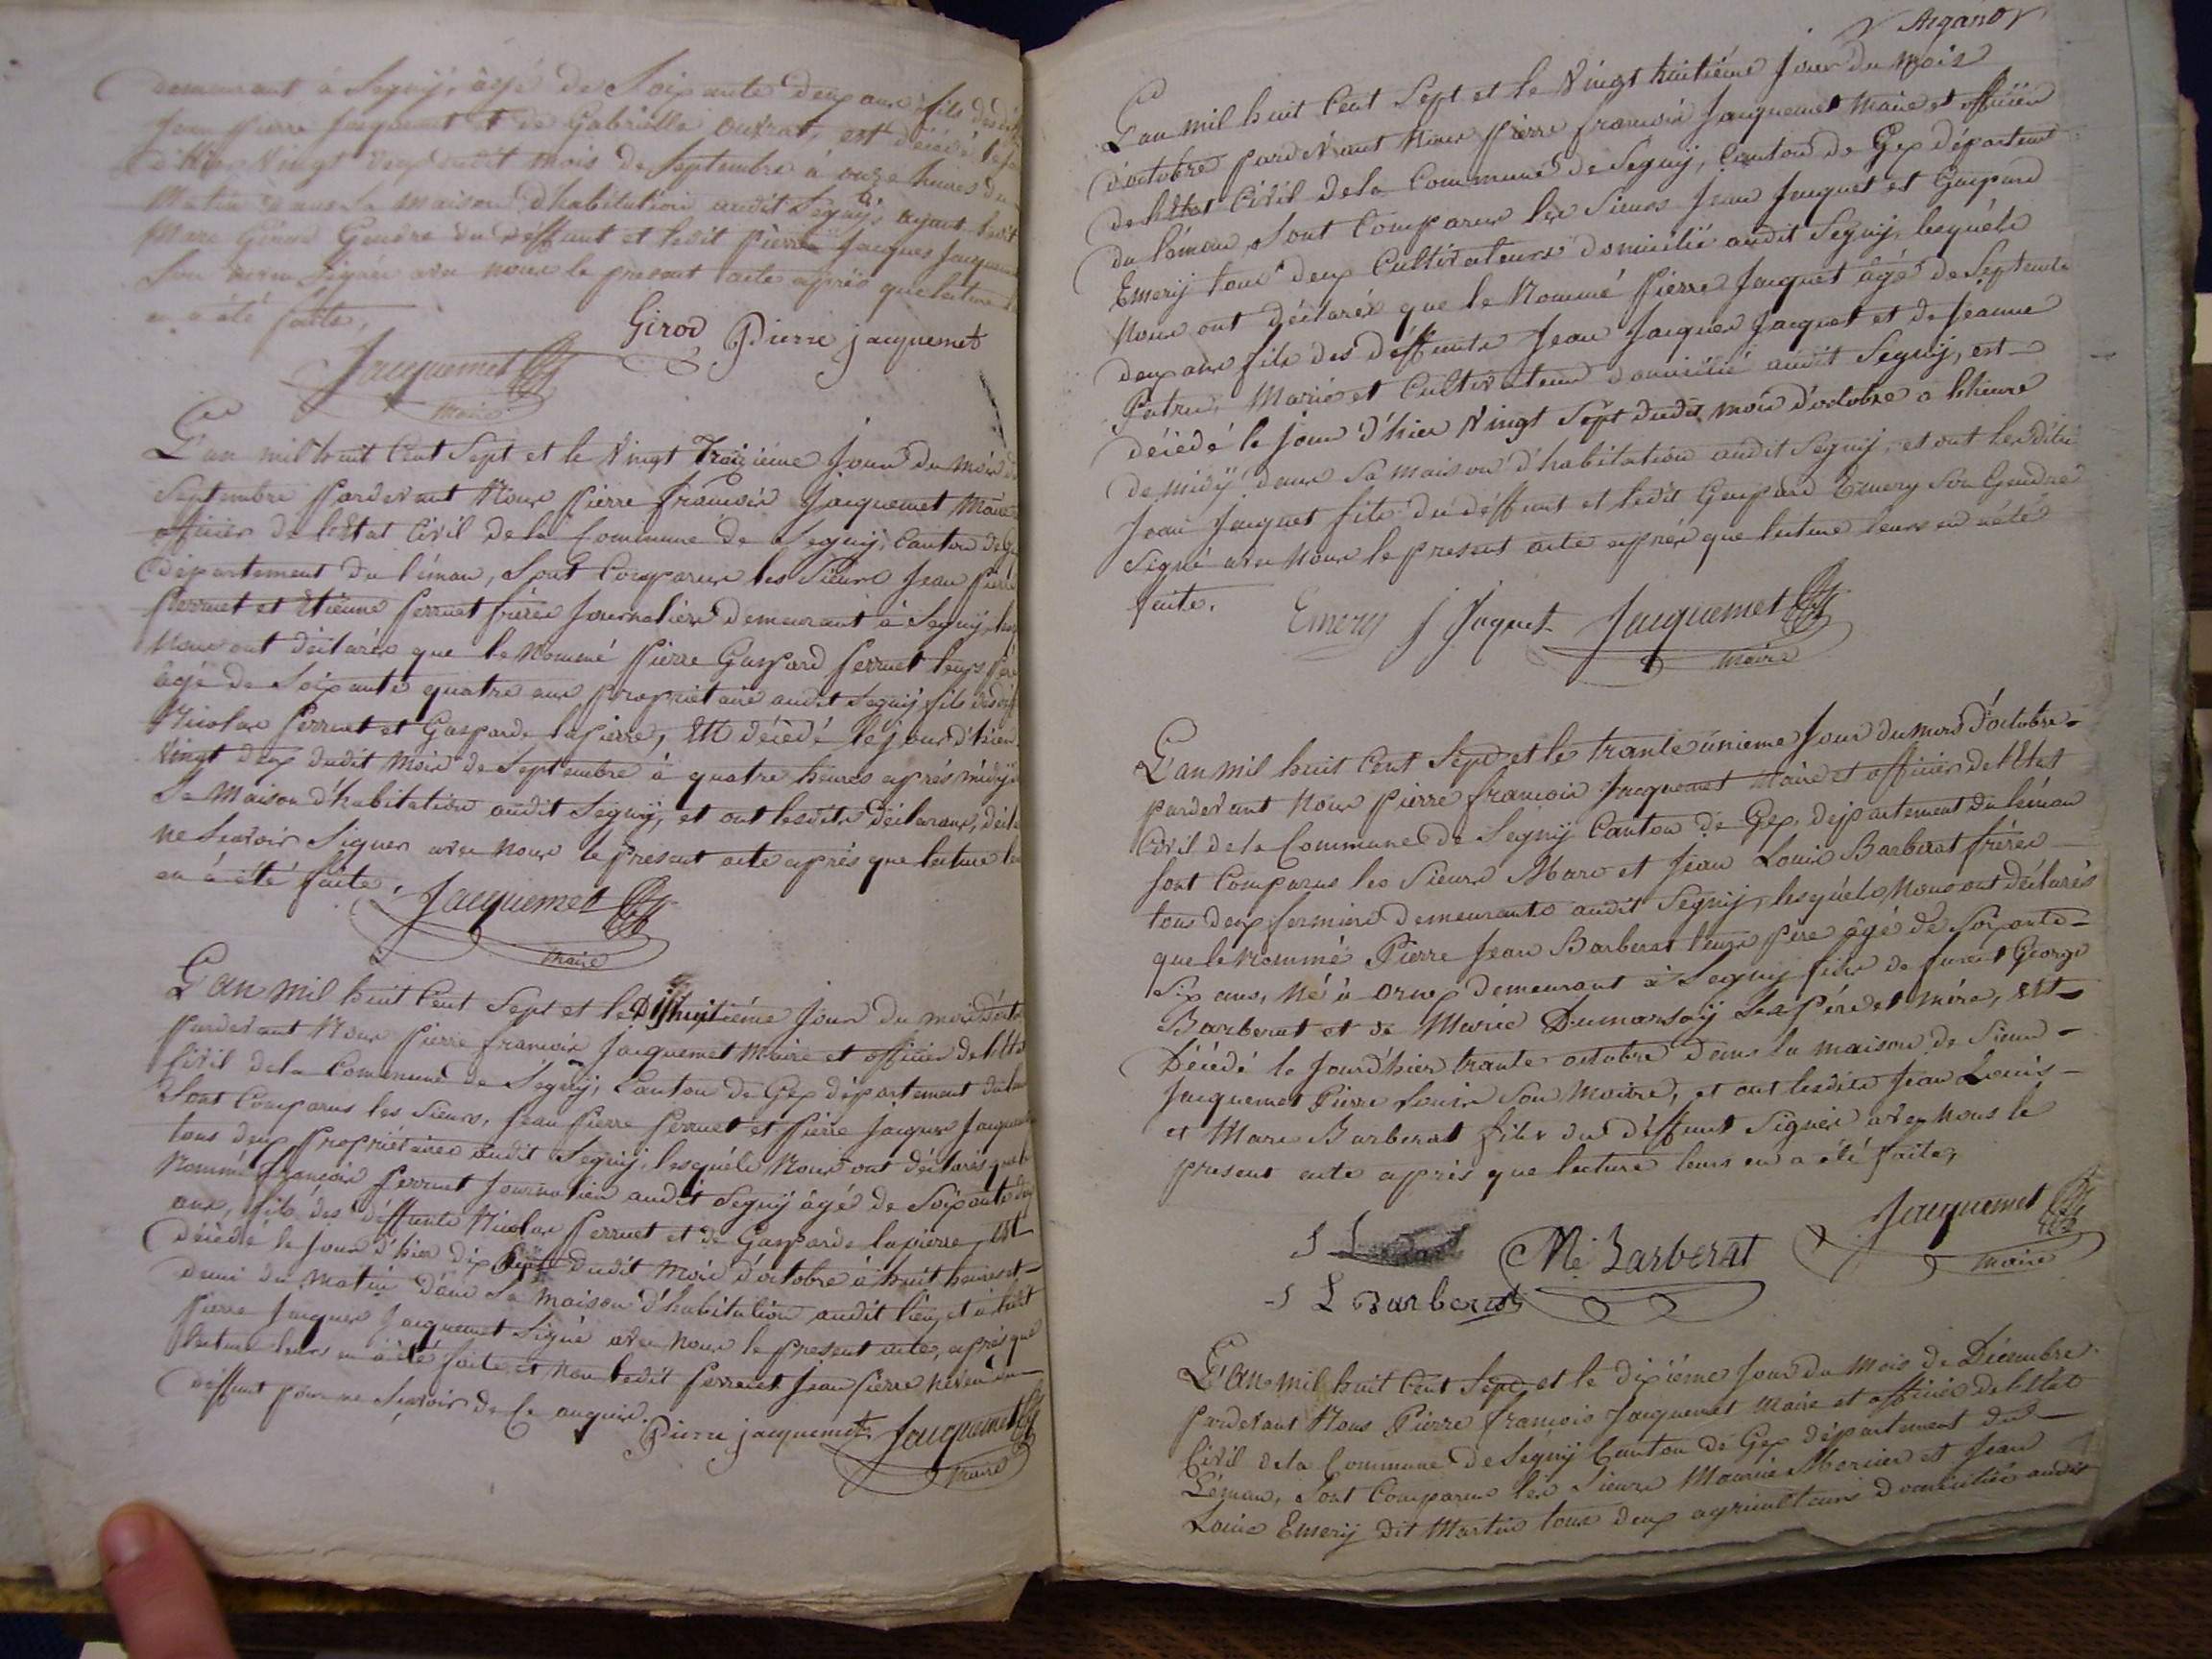 demeurant à Segnÿ, âgé de Soixante deux ans fils des
Jean Pierre Jacquemet et de Gabrielle Outrat, est décédé le
d'hier Vingt deux dudit mois de Septembre à onze heures du
Matin dans Sa maison d'habitation audit Segnÿ, ayant ledit
Marc Girod Gendre du deffunt et ledit Pierre Jacques Jacquemet
Son Signés avec nous le present acte après que lecture
en a été faite,
Girod Pierre jacquemet
Jacquemet
Maire
L'an mil huit Cent Sept et le Vingt Troizième Jour du mois de
Septembre Pardevant Nous Pierre françois Jacquemet Maire
officier de l'Etat Civil de la Commune de Segnÿ, Canton de
Département du Léman, Sont Comparus les Sieurs Jean Pierre
Perruet et Etienne Perruet frères Journaliers demeurant à Segnÿ,
Nous ont déclarés que le Nommé Pierre Gaspard Perruet leurs Père
âgé de Soixante quatre ans Proprietaire audit Segnÿ fils des
Nicolas Perruet et Gasparde lapierre, Est décédé le jour d'hier
Vingt deux dudit Mois de Septembre à quatre heures après midÿ
Sa Maison d'habitation audit Segnÿ, et ont lesdits Déclarans,
ne Scavoir Signer avec Nous le Présent acte après que lecture
en à été faite, Jacquemet
Maire
L'an mil huit Cent Sept et le Dixhuitiéme Jour du mois
Pardevant Nous Pierre françois Jacquemet Maire et officier de l'Etat
Civil de la Commune de Segnÿ, Canton de Gex département du
Sont Comparus les Sieurs, Jean Pierre Perruet et Pierre Jacques Jacquemet
tous deux Propriétaires audit Segnÿ, lesquéls Nous ont déclarés que le
Nommé François Perruet Journalier audit Segnÿ âgé de Soixante
ans, fils des déffunts Nicolas Perruet et de Gasparde lapierre, est
Décédé le Jour d'hier dix Sept dudit Mois d'octobre à huit heures et
demi du Matin dans Sa Maison d'habitation audit lieu, et à ledit
Pierre Jacques Jacquemet Signé avec nous le present acte, après que
lecture leurs en à été faite et non ledit Perruet Jean Pierre neveu du
déffunt pour ne Scavoir de Ce enquis.
Pierre jacquemet Jacquemet
Maire
Argand
L'an mil huit Cent Sept et le Vingt huitiéme Jour du Mois
d'octobre Pardevant Nous Pierre françois Jacquemet Maire et officier
de l'Etat Civil de la Commune de Segnÿ, Canton de Gex département
du Léman, Sont Comparus les Sieurs Jean Jacquet et Gaspard
Emerÿ tous deux Cultivateurs domicilié audit Segnÿ, lesquéls
Nous ont déclarés que le Nommé Pierre Jacquet âgé de Septente
deux ans fils des déffunts Jean Jacques Jacquet et de Jeanne
Patru, Marié et Cultivateur domicilié audit Segnÿ, est
décédé le jour d'hier Vingt Sept dudit mois d'octobre a l'heure
de midÿ dans Sa maison d'habitation audit Segnÿ, et ont lesdits
Jean Jacquet fils du déffunt et ledit Gaspard Emery Son Gendre
Signé avec Nous le present acte après que lecture leurs en à été
faite.
Emery J Jaquet Jacquemet
Maire
L'an mil huit Cent Sept et le trante unieme Jour du mois d'octobre
pardevant nous Pierre françois Jacquemet Maire et officier de l'Etat
Civil de la Commune de Segnÿ Canton de Gex, département du Léman
Sont Comparus les Sieurs Marc et Jean Louis Barberat fréres
tous deux fermiers demeurants audit Segnÿ, lesquéls Nous ont déclarés
que le Nommé Pierre Jean Barberat leurs Père âgé de Soixante
Six ans, Né à Ornex demeurant à Segnÿ fils de furent George
Barberat et de Marie Dumarsaÿ Ses Pére et mère, est
Décédé le Jour d'hier trante octobre dans la maison de Sieur
Jacquemet Pierre Louis Son Maitre, et ont lesdits Jean Louis
et Marc Barberat fils du déffunt Signés avec Nous le
present acte après que lecture leurs en a été faite,
Jacquemet
Maire
J L
Mc Barberat
J L Barberat
L'an mil huit Cent Sept et le dixiéme Jour du Mois de Décembre
Pardevant Nous Pierre françois Jacquemet Maire et officier de l'Etat
Civil de la Commune de Segnÿ Canton de Gex département du
Léman, Sont Comparus les Sieurs Maurice Mercier et Jean
Louis Emerÿ dit Martin tous deux agriculteurs domiciliés audit